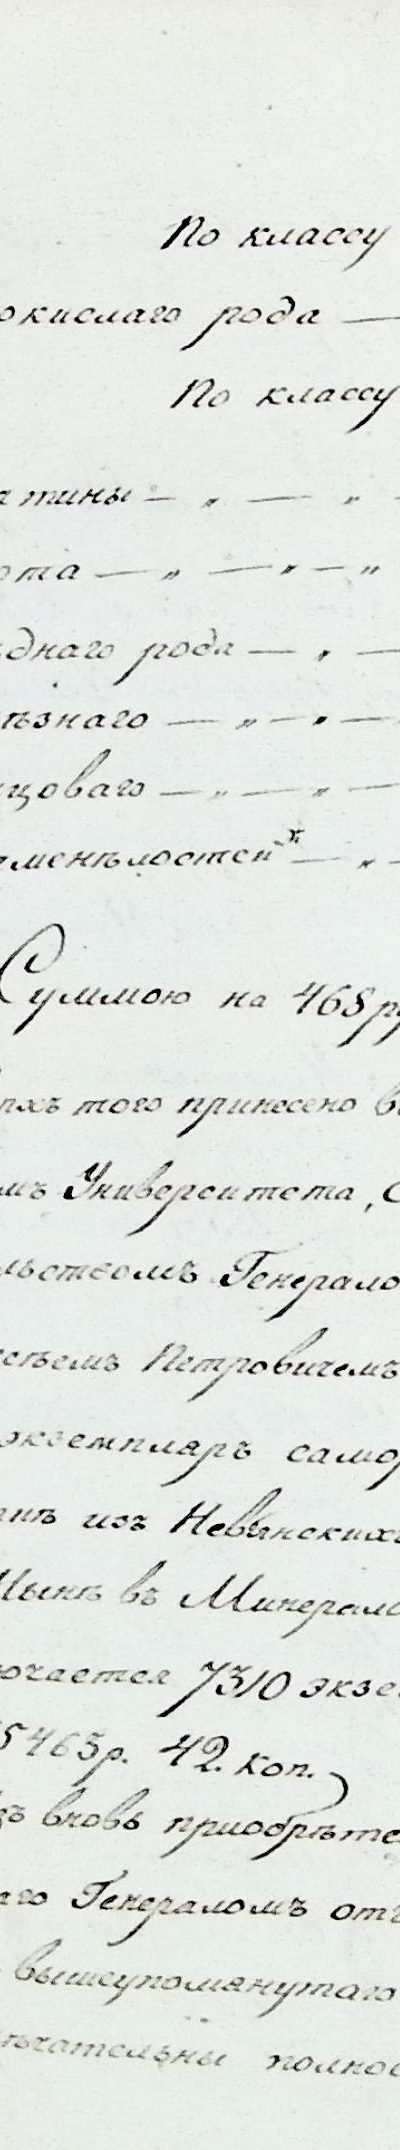 По классу
окислаго рода —
По классу
тины — „ — „
ота — „ — „ — „
днаго рода — „ —
ѣзнаго — „ — „ —
цоваго — „ — „ —
менѣлостей х — „ —
Суммою на 468 р
рхъ того принесено в
мъ Университета, С
льствомъ Генерало
сѣемъ Петровичемъ
экземпляръ само
инѣ изъ Невьянскихъ
Нынѣ въ Минерало
ючается 7310 экзе
5463 р. 42. коп.)
ъ вновь приобрѣте
аго Генераломъ отъ
вышеупомянутаго
ѣчательны полнос